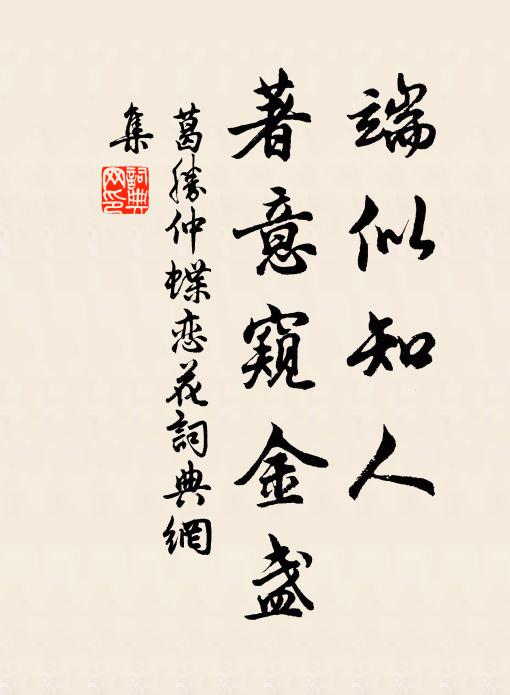 端似知人
著意窺金盏
葛勝仲蝶恋花詞典網
集
詞典
网印